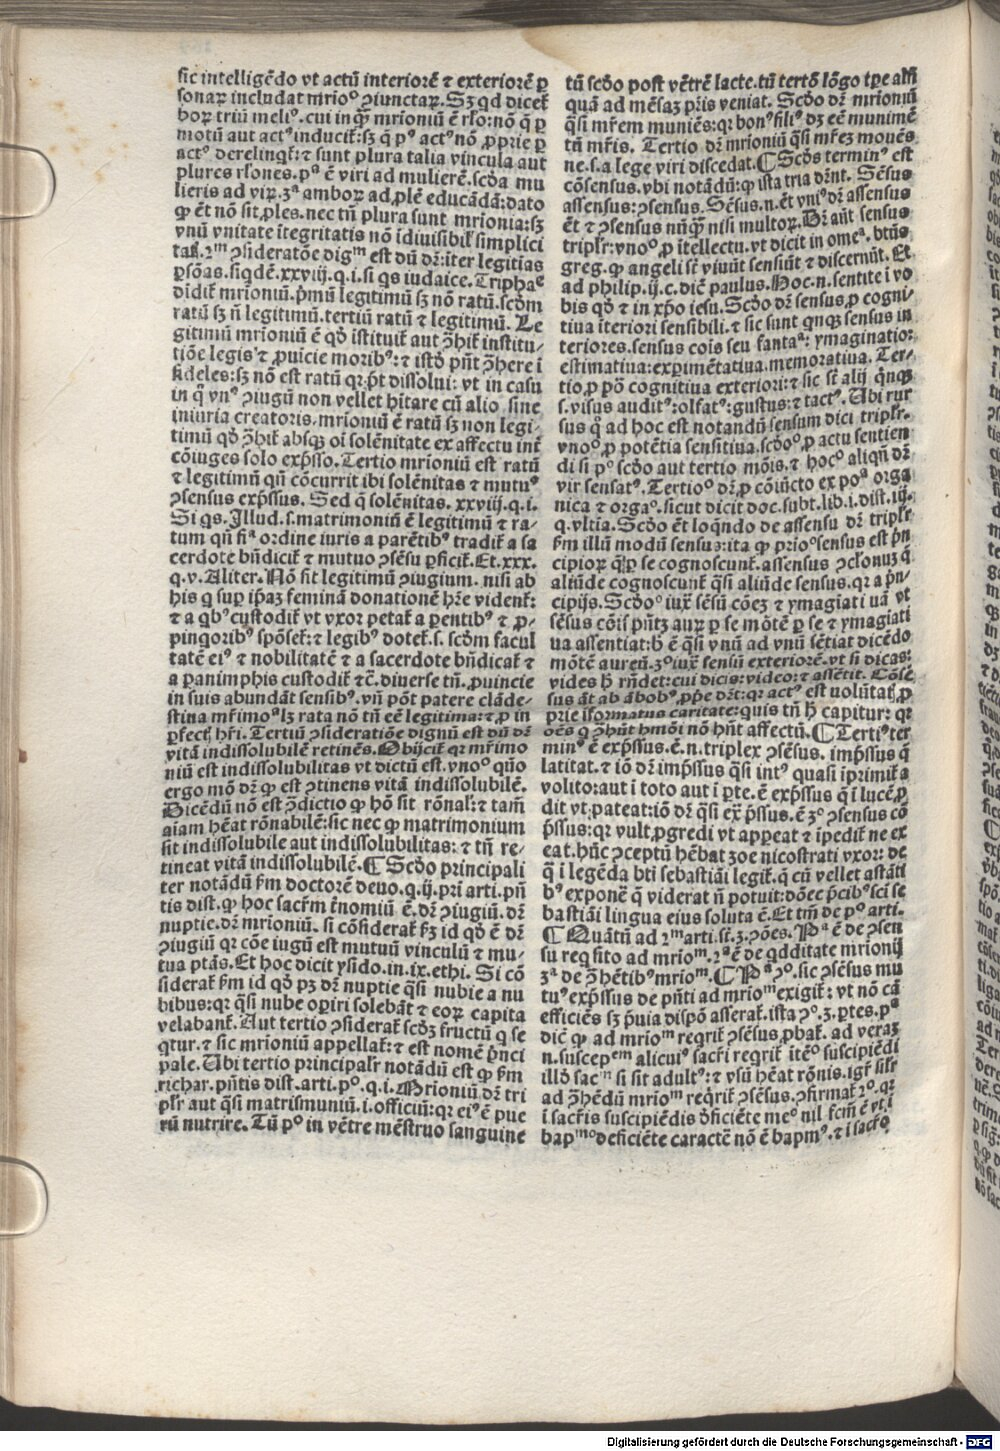 sic intelligēdo vt actū interiorē ⁊ exteriorē ꝑ
sonaꝝ includat mrioꝰ ꝯiunctaꝝ. Sꝫ qđ diceƚ
hoꝝ triū meliꝰ. cui inqꝫ mrioniū ē rñso: nō q̄ ꝑ
motū aut actꝰ inducit̃: sꝫ q̄ pꝰ actꝰ nō ꝓprie ꝑ
actꝰ derelinqt̃: ⁊ sunt plura talia vincula aut
plures rñones. pᵃ ē viri ad mulierē. scđa mu
lieris ad viꝝ. 3ᵃ amboꝝ ad ꝓlē educādā: dato
ꝙ ēt nō sit ꝓles. nec tñ plura sunt mrionia: sꝫ
vnū vnitate ītegritatis nō īdiuisibiƚ simplici
taƚ. 2ᵐ ꝯsideratōe digᵐ est dū dr̄: iter legitīas
ꝑsōas. siqdē. xxviij. q. i. si qs iudaice. Triphaᵉ
dīdit̃ mrioniū. pʼmū legitimū sꝫ nō ratū. scđm
ratū sꝫ ñ legitimū. tertiū ratū ⁊ legitimū. Le
gitimū mrioniū ē qđ īstituit̃ aut ꝯhit̃ institu/
tiōe legis ⁊ ꝓuīcie moribꝰ: ⁊ istđ pñt ꝯhere ī
fideles: sꝫ nō est ratū qꝛ pt̄ dissolui: vt in casu
in q̄ vnꝰ ꝯiugū non vellet hītare cū alio sine
iniuria creatoris. mrioniū ē ratū sꝫ non legi/
timū qđ ꝯhit̃ absqꝫ oī solēnitate ex affectu int̃
cōiuges solo exp̄sso. Tertio mrioniū est ratū
⁊ legitimū qñ cōcurrit ibi solēnitas ⁊ mutuꝰ
ꝯsensus exp̄ssus. Sed q̄ solēnitas. xxviij. q. i.
Si qs. Illud. s. matrimoniū ē legitimū ⁊ ra/
tum qñ fīᵃ ordine iuris a parētibꝰ tradit̃ a sa
cerdote bn̄dicit̃ ⁊ mutuo ꝯsēsu ꝑficit̃. Et. xxx.
q. v. Aliter. Nō fit legitimū ꝯiugium. nisi ab
his q sup ip̄aꝫ feminā donationē hr̄e vident̃:
⁊ a qbꝰ custodit̃ vt vxor petat̃ a ꝑentibꝰ ⁊ ꝓ/
pingoribꝰ spōset̃: ⁊ legibꝰ dotet̃. s. scđm facul
tatē eiꝰ ⁊ nobilitatē ⁊ a sacerdote bñdicat̃ ⁊
a panimphis custodit̃ ⁊c̄. diuerse tñ. ꝓuincie
in suis abundāt sensibꝰ. vñ pōt patere clāde/
stina mr̄imoᵃ lꝫ rata nō tñ eē legitima: ⁊ ꝓ in
ꝑfect̃ hr̄i. Tertiū ꝯsideratiōe dignū est dū dr̄
vitā indissolubilē retinēs. Obijcit̃ qꝛ mr̄imo
niū est indissolubilitas vt dictū est. vnoꝰ qūo
ergo mō dr̄ ꝙ est ꝯtinens vitā indissolubilē.
Dicēdū nō est ꝯdictio ꝙ hō sit rōnaƚ: ⁊ tam̄
aīam hēat rōnabilē: sic nec ꝙ matrimonium
sit indissolubile aut indissolubilitas: ⁊ tñ re/
tineat vitā indissolubilē. ¶ Scđo principali
ter notādū ẜm doctorē deuo. q. ij. pri arti. pñ
tis dist. ꝙ hoc sacr̄m t̄nomiū ē. dr̄ ꝯiugiū. dr̄
nuptie. dr̄ mrioniū. si cōsiderat̃ ẜꝫ id qđ ē dr̄
ꝯiugiū qꝛ cōe iugū est mutuū vinculū ⁊ mu/
tua ptās. Et hoc dicit ysido. in. ix. ethi. Si cō
siderat̃ ẜm id qđ pꝫ dr̄ nuptie qsi nubie a nu
bibus: qꝛ qsi nube oꝑiri solebāt ⁊ eoꝝ capita
velabant̃. Aut tertio ꝯsiderat̃ scđꝫ fructū q se
qtur. ⁊ sic mrioniū appellat̃: ⁊ est nomē pʼnci
pale. Ubi tertio principalr̄ notādū est ꝙ ẜm
richar. pñtis dist. arti. pꝰ. q. i. Mrioniū dr̄ tri
plr̄ aut qsi matrismuniū. i. officiū: qꝛ eiꝰ ē pue
rū nutrire. Tū pꝰ in vētre mēstruo sanguine
tū scđo post vētrē lacte. tū tertō lōgo tꝑe alit̄
quā ad mēsaꝫ pr̄is veniat. Scđo dr̄ mrioniū
qsi mr̄em muniēs: qꝛ bonꝰ filiꝰ dꝫ eē munimē
tū mr̄is. Tertio dr̄ mrioniū qsi mr̄eꝫ mouēs
ne. s. a lege viri discedat. ¶ Scđs terminꝰ est
cōsensus. vbi notādū: ꝙ ista tria dr̄nt. Sēsus
assensus: ꝯsensus. Sēsus. n. ēt vniꝰ dr̄ assensus
ēt ⁊ ꝯsensus nūqꝫ nisi multoꝝ. Dr̄ aūt sensus
tripƚr: vnoꝰ ꝓ itellectu. vt dicit in omeᵃ. btūs
greg. ꝙ angeli sīt viuūt sensiūt ⁊ discernūt. Et
ad philip. ij. c. dicē paulus. Hoc. n. sentite i vo
bis qđ ⁊ in xp̄o iesu. Scđo dr̄ sensus ꝓ cogni/
tiua īteriori sensibili. ⁊ sic sunt qnqꝫ sensus in
teriores. sensus cōis seu fantaᵃ: ymaginatio:
estimatiua: expimētatiua. memoratiua. Ter/
tio ꝓ po cognitiua exteriori: ⁊ sic sīt alij qnqꝫ
s. visus auditꝰ: olfatꝰ: gustus: ⁊ tactꝰ. Ubi rur
sus q̄ ad hoc est notandū sensum dici tripƚr.
vnoꝰ ꝓ potētia sensitiua. scđoꝰ ꝓ actu sentien
di si pꝰ scđo aut tertio mōis. ⁊ hocꝰ aliqñ dr̄
vir sensatꝰ. Tertioꝰ dr̄ ꝓ cōiūcto ex poᵃ orga
nica ⁊ orgaꝰ. sicut dicit doc. subt. lib. i. dist. iij.
q. vltia. Scđo ēt loqndo de assensu dr̄ tripƚr
ẜm illū modū sensus: ita ꝙ prioꝰ sensus est p̄n
cipioꝝ q̄ ꝑ se cognoscunt̃. assensus ꝯclonuꝫ q̄
aliūde cognoscunt̃ qsi aliūde sensus. qꝛ a p̄n/
cipijs. Scđoꝰ iux̄ sēsū cōeꝫ ⁊ ymagīati uā vt
sēsus cōis pñtꝫ auꝝ ꝑ se mōtē ꝑ se ⁊ ymagīati
ua assentiat: h ē qsi vnū ad vnū sētiat dicēdo
mōtē aureū. 3ꝰ iux̄ sensū exteriorē. vt si dicas:
vides h̄ rn̄det: cui dicis: video: ⁊ assētit. Cōsē
sus āt ab ābobꝰ ꝓpʼe dr̄t: qꝛ actꝰ est volūtat̃ ꝓ
prie īformatus caritate: quis tñ h̄ capitur: qꝛ
oēs q ꝯhūt hmōi nō hn̄t affectū. ¶ Tertiꝰ ter
minꝰ ē exp̄ssus. ē. n. triplex ꝯsēsus. imp̄ssus q̄
latitat. ⁊ iō dr̄ imp̄ssus qsi intꝰ quasi īprimit̃ a
volito: aut i toto aut i ꝑte. ē exp̄ssus q̄ i lucē ꝓ
dit vt ꝑateat: iō dr̄ qsi ex̄ p̄ssus. ē 3ꝰ ꝯsensus cō
p̄ssus: qꝛ vult ꝓgredi vt appeat ⁊ īpedit̃ ne ex
eat. hūc ꝯceptū hēbat zoe nicostrati vxor: de
q̄ i legēda bti sebastiāi legit̃. q̄ cū vellet astāti
bꝰ exponē q̄ viderat ñ potuit: dōec pʼcibꝰ sci se
bastiāi lingua eius soluta ē. Et tm̄ de pꝰ arti.
¶ Quātū ad 2ᵐ arti. sī. 3. ꝯōes. Pᵃ ē de ꝯsen
su reqsito ad mrioᵐ. 2ᵃ ē de qdditate mrionij
3ᵃ de ꝯhētibꝰ mrioᵐ. ¶ Pᵃ ꝯꝰ. sic ꝯsēsus mu
tuꝰ exp̄ssus de pñti ad mrioᵐ exigit̃: vt nō cā
efficiēs sꝫ p̄uia dispō asserat̃. ista ꝯꝰ. 3. ꝑtes. pᵃ
dic̄ ꝙ ad mrioᵐ reqrit̃ ꝯsēsus ꝓbat̃. ad veraꝫ
n. suscepᵉᵐ alicuiꝰ sacr̄i reqrit̃ itēꝰ suscipiēdi
illđ sacᵐ si sit adultꝰ: ⁊ vsū hēat rōnis. igr̄ silr̄
ad ꝯhēdū mrioᵐ reqrit̃ ꝯsēsus. ꝯfirmat̃ 2ꝰ. qꝛ
i. sacr̄is suscipiēdis đficiēte meꝰ nil fcm̄ ē vt i
bapᵐᵒ deficiēte caractē nō ē bapmꝰ. ⁊ i sacr̄o
Digitalisierung gefördert durch die Deutsche Forschungsgemeinschaft - DFG